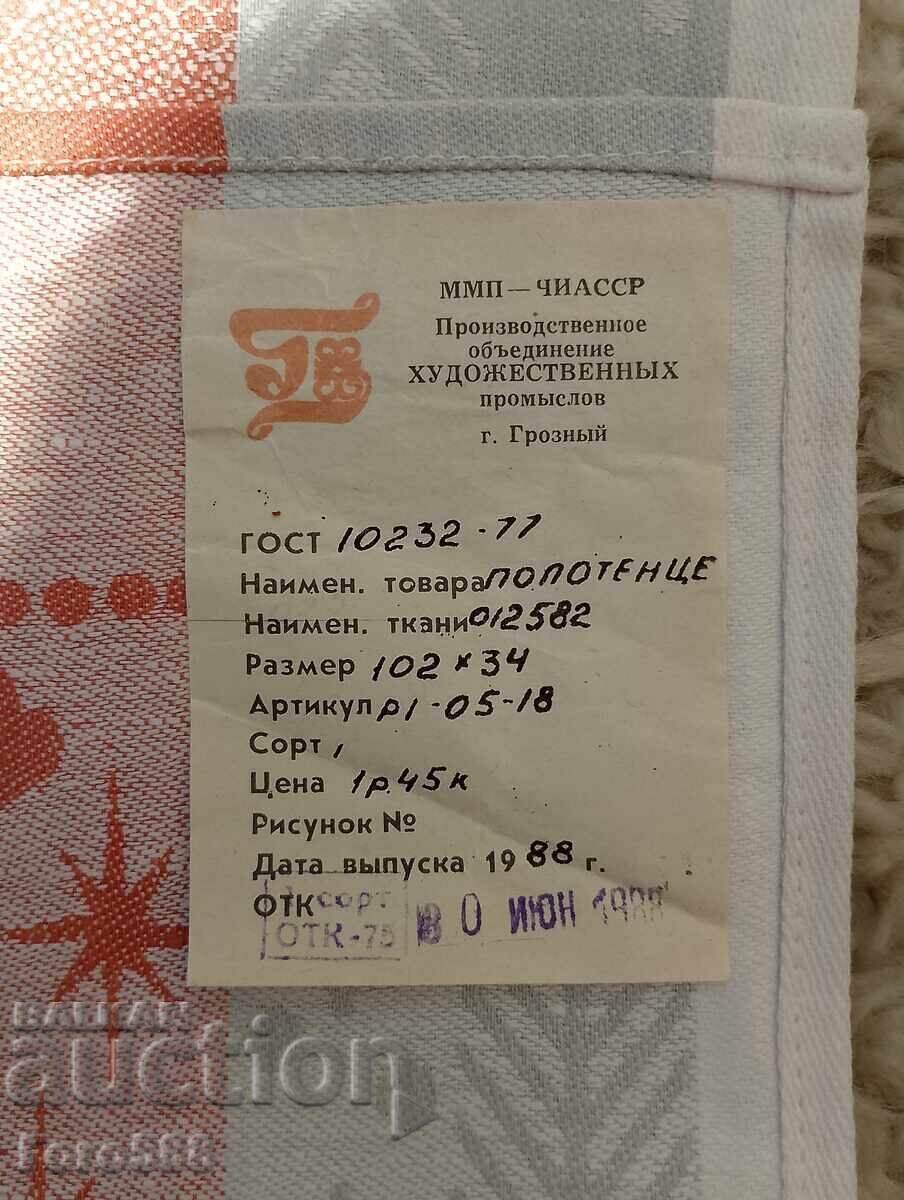 ММП — ЧИАССР
Производственное
объединение
ХУДОЖЕСТВЕННЫХ
промыслов
г. Грозный
ГОСТ 10232-77
Наимен. товара ПОЛОТЕНЦЕ
Наимен. ткани 012582
Размер 102 х 34
Артикул р1-05-18
Сорт 1
Цена 1р.45к
Рисунок №
Дата выпуска 1988 г.
ОТК
сорт
ОТК-75
30 ИЮН 1988
BALKAN
auction
Foro568